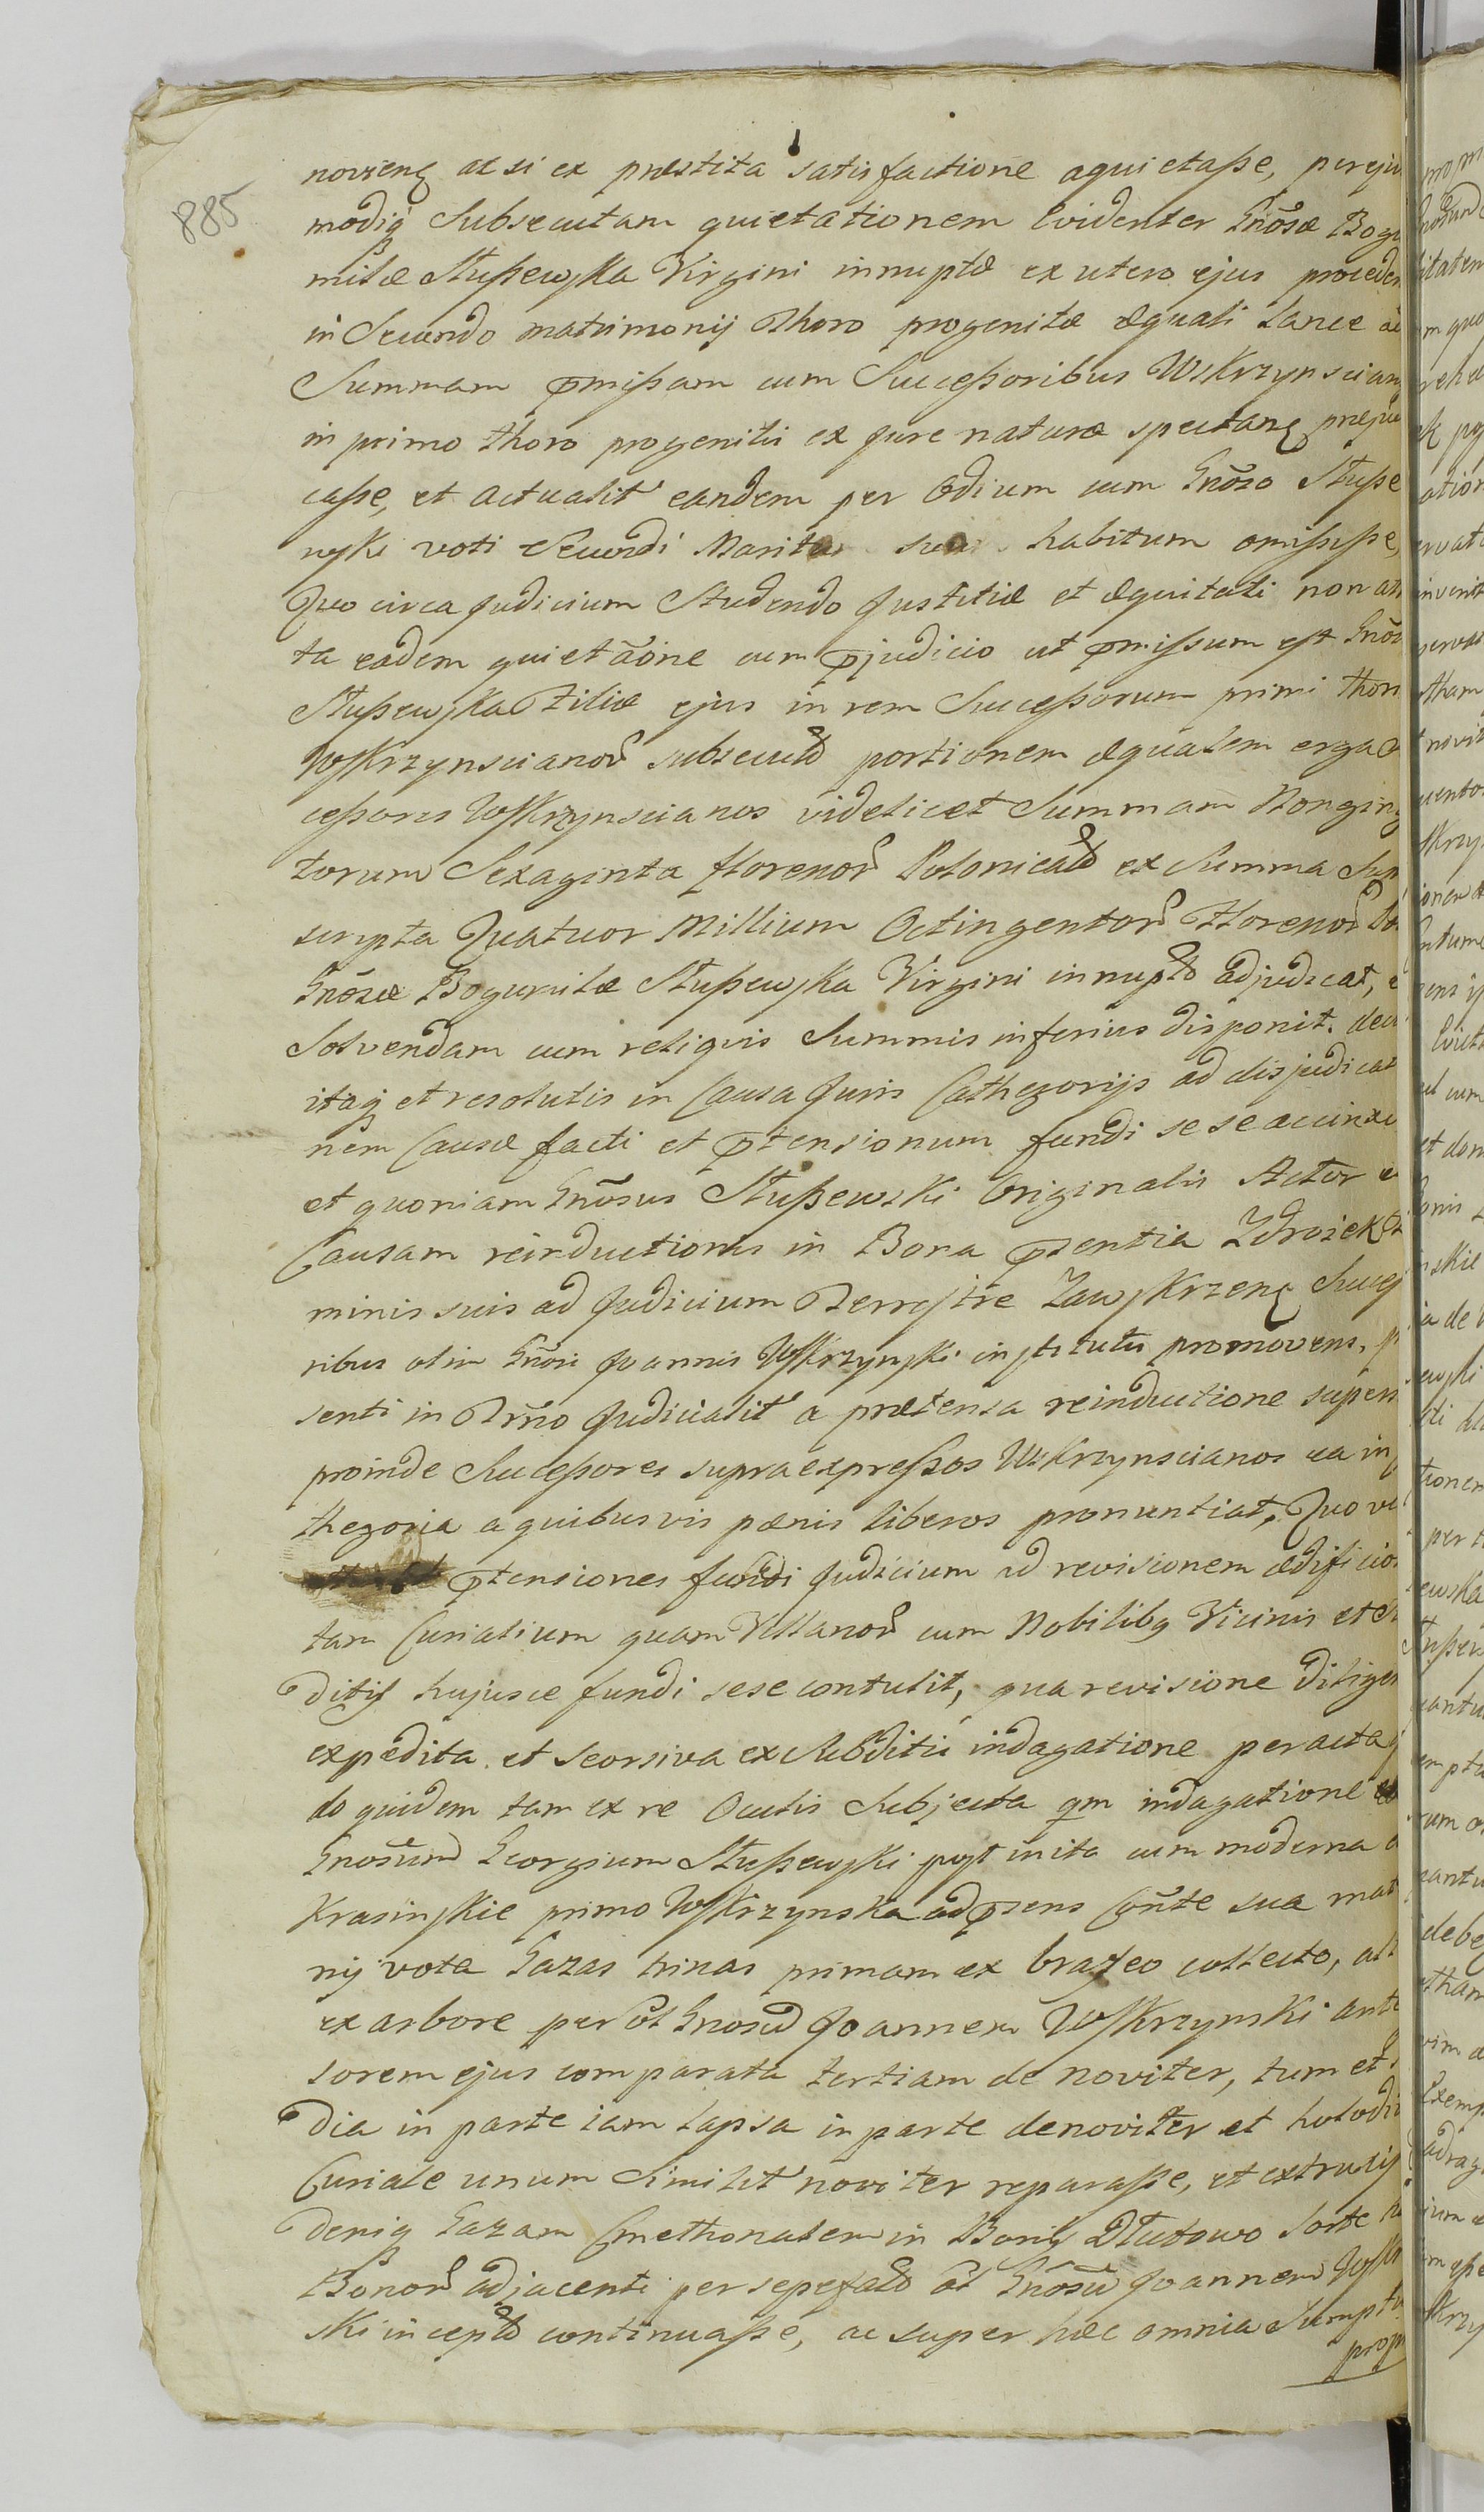 885
novieng ac si ex præstita satisfactione aquietasse, pereju
modiq Subsecutam quietationem Evidenter Gnôsæ Bogu
milæ Stußewska Virgini innuptæ ex utero ejus proceden
in Secundo matrimonij thoro progenitæ æquali Lance ad
Summam pmißam cum Succeßoribus Wskrzynscian
in primo thoro progenitis ex Jure naturæ spectang præju
casse, et actualit eandem per Odium cum Gnôso Stuße
wski voti Secundi Marito suo habitum omisisse,
Quo circa Judicium Studendo Justitiæ et æquitati non at
ta eadem quietãone cum pjudicio ut pmissum est Gnôs
Stußewska Filiæ ejus in rem Succeßorum primi thori
Wskrzynscianor subsecuta portionem æqualem erga
ceßores Wskrzynscianos videlicet Summam Nongin
torum Sexaginta florenor Polonical ex Summa Sup
scripta Quatuor Millium Octingentor Florenor Po
Gnôsæ Bogumilæ Stußewska Virgini innuptæ adjudicat, e
Solvendam cum reliquis Summis inferius disponit. deci
itaq et resolutis in Causa Juris Cathegorijs ad disjudicat
nem Causæ facti et ptensionum fundi se se accinxi
et quoniam Gnôsus Stußewski Originalis Actor
Causam reinductionis in Bona psentia Zdroiek
minis suis ad Judicium Terrestre Zawskrzeng Succeß
ribus olim Gnôsi Joannis Wskrzynski institutis promovens,
senti in Trño Judicialit a prætensa reinductione supers
proinde Succeßores supraexpreßos Wskrzynscianos ea in
thegoria a quibusvis pænis liberos pronuntiat, Quo v
ptensiones fundi Judicium ad revisionem ædificio
tam Curialium quam Villanor cum Nobilibg Vicinis et
ditis hujusce fundi sese contulit, qua revisione Diligen
expedita et seorsiva ex Subditis indagatione peracta
do quidem tam ex re Oculis Subjecta qm indagatione
Gnôsum Georgium Stußewski post inita cum moderna
Krasinskie primo Wskrzynska ad psens Cõnte sua mat
nij vota Gazas trinas primam ex brazeo collecto, al
ex arbore per ol Gnosu Joannem Wskrzynski ante
sorem ejus comparata tertiam de noviter, tum et
dia in parte iam lapsa in parte denoviter et
Curiale unum Similit noviter reparasse, et extruxis
deniq Gazam Cmethonalem in Bonis Dłutowo Sorte
Bonor adjacenti per sepefat ol Gnôsu Joannem Wsk
ski incepta continuasse, ac super hæc omnia Sumpt
prop